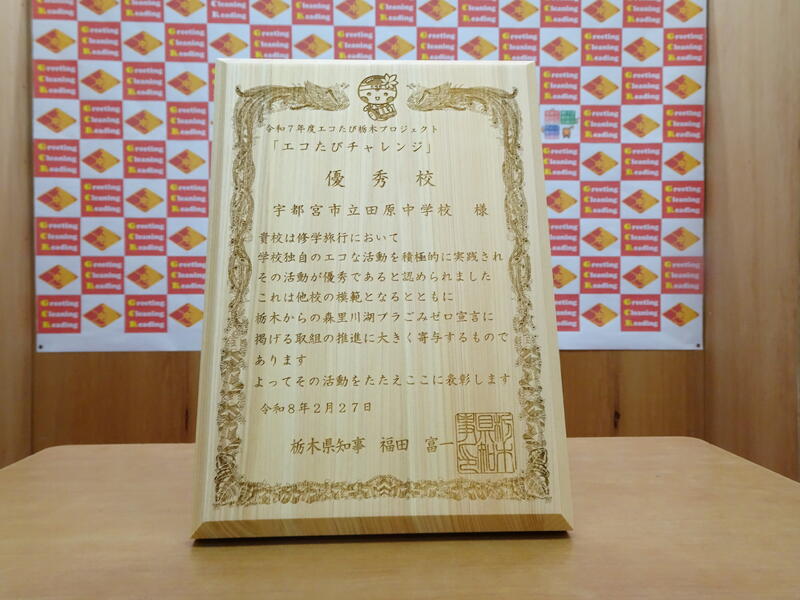 令和7年度エコたび栃木プロジェクト
「エコたびチャレンジ」
優秀校
宇都宮市立田原中学校 様
貴校は修学旅行において
学校独自のエコな活動を積極的に実践され
その活動が優秀であると認められました
これは他校の模範となるとともに
栃木からの森里川湖プラごみゼロ宣言に
掲げる取組の推進に大きく寄与するもので
あります
よってその活動をたたえここに表彰します
令和8年2月27日
栃木県知事 福田 富一
Greeting
Cleaning
Reading